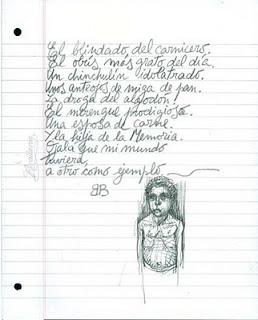 El blindado del carnicero.
El obús más grato del día.
Un chinchulín idolatrado.
Unos anteojos de miga de pan.
La droga del algodón!
El merengue prodigioso.
Una esposa de carne.
Y la hija de la Memoria.
Ojala que mi mundo
tuviera,
a otro como ejemplo
BB